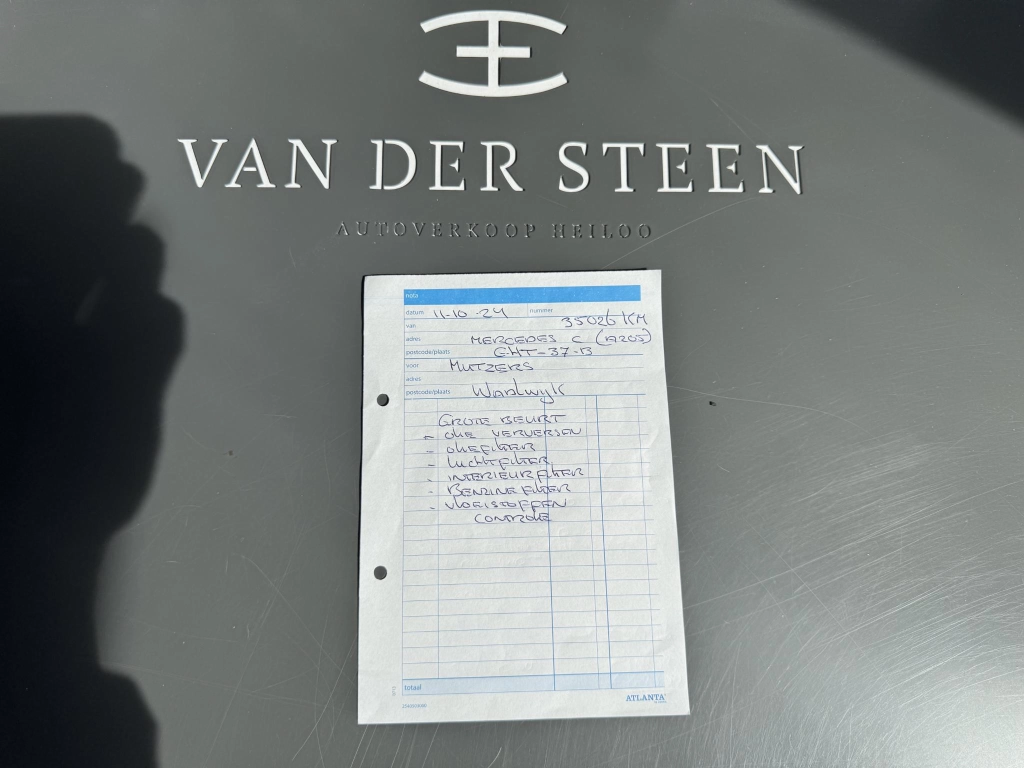 VAN DER STEEN
AUTOVERKOOP HEILOO
nota
datum 11-10-24 nummer
van 35026 KM
adres MERCEDES C (W205)
postcode/plaats
voor MUTZERS
adres
postcode/plaats Waalwijk
GROTE BEURT
- OLIE VERVERSEN
- OLIEFILTER
- LUCHTFILTER
- INTERIEURFILTER
- BENZINEFILTER
- VLOEISTOFFEN
CONTROLE
totaal
ATLANTA